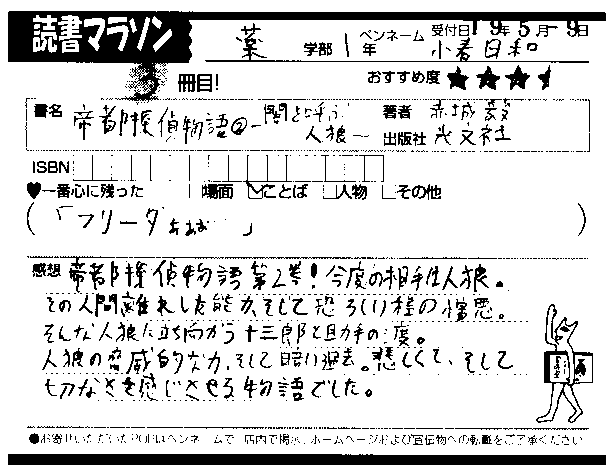 読書マラソン
受付日 19年5月9日
薬 学部 1年 ペンネーム 小春日和
3冊目!
おすすめ度 ★★★
書名 帝都探偵物語② 闇を呼ぶ人狼〜
著者 赤城毅
出版社 光文社
ISBN
♥一番心に残った □場面 ☑ことば □人物 □その他
(「フリーダぁぁぉ…」)
感想 帝都探偵物語第2巻!今度の相手は人狼。
その人間離れした能力、そして恐ろしい様の憎悪。
そんな人狼に立ち向かう十三郎と
人狼の脅威的な力、そして暗い過去。悲しくて、そして
切なさを感じさせる物語でした。
●お寄せいただいたPOPはペンネームで 店内で掲示、ホームページおよび宣伝物への転載をご了承ください